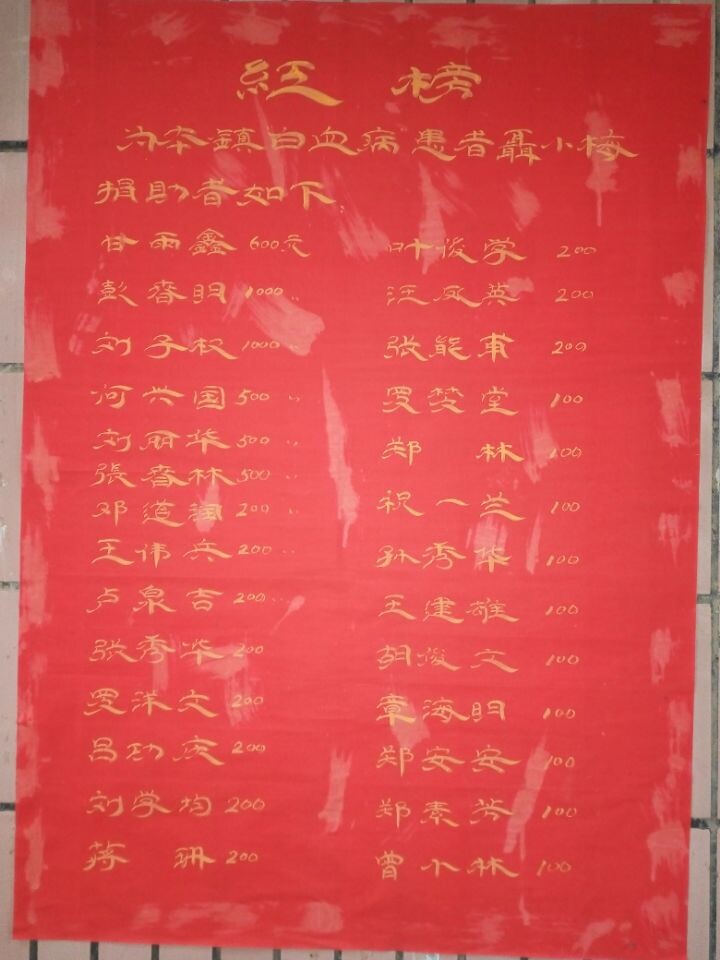 紅榜
为本鎮白血病患者聶小梅
捐助者如下
甘雨鑫 600元
彭春明 1000〃
刘子权 1000〃
何兴国 500〃
刘丽华 500〃
張春林 500〃
邓道国 200〃
王伟兵 200〃
卢泉吉 200〃
张秀华 200
罗洪文 200
吕功庆 200
刘学均 200
蒋珊 200
叶俊学 200
汪成英 200
张能甫 200
罗楚堂 100
郑林 100
祝一兰 100
孙秀华 100
王建雄 100
胡俊文 100
章海明 100
郑安安 100
郑素芳 100
曾小林 100